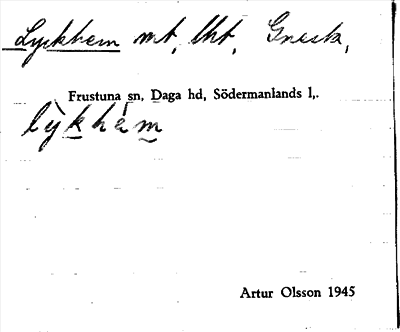 Lyckhem mt, lht, Gnesta,
Frustuna sn, Daga hd, Södermanlands l,.
lỳkhém
Artur Olsson 1945